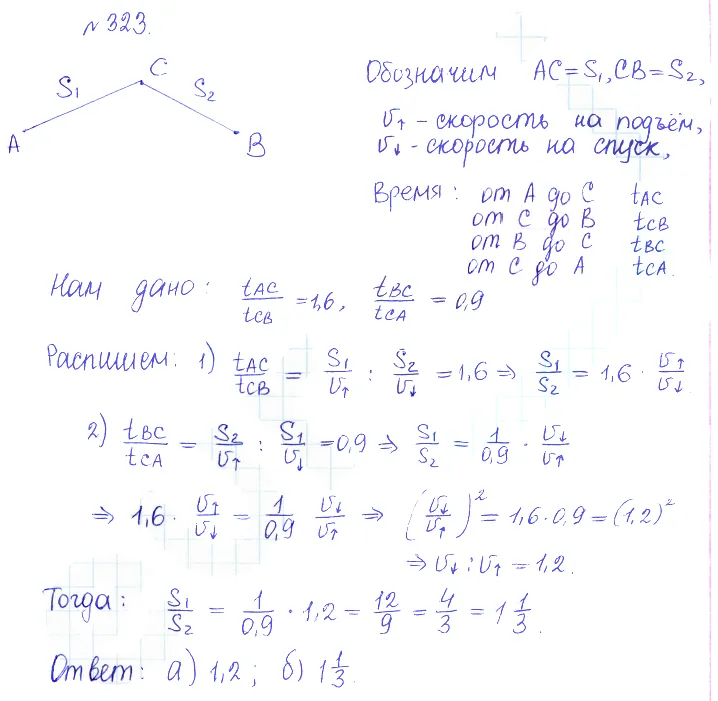 N 323.
S₁ C S₂
A B
Обозначим AC=S₁, CB=S₂,
υ↑ - скорость на подъём,
υ↓ - скорость на спуск,
Время: от A до C tAC
от C до B tCB
от B до C tBC
от C до A tCA.
Нам дано: tAC/tCB = 1,6, tBC/tCA = 0,9
Распишем: 1) tAC/tCB = S₁/υ↑ : S₂/υ↓ = 1,6 ⇒ S₁/S₂ = 1,6 · υ↑/υ↓
2) tBC/tCA = S₂/υ↑ : S₁/υ↓ = 0,9 ⇒ S₁/S₂ = 1/0,9 · υ↓/υ↑
⇒ 1,6 · υ↑/υ↓ = 1/0,9 υ↓/υ↑ ⇒ (υ↓/υ↑)² = 1,6·0,9 = (1,2)²
⇒ υ↓ : υ↑ = 1,2.
Тогда: S₁/S₂ = 1/0,9 · 1,2 = 12/9 = 4/3 = 1 1/3.
Ответ: а) 1,2; б) 1 1/3.